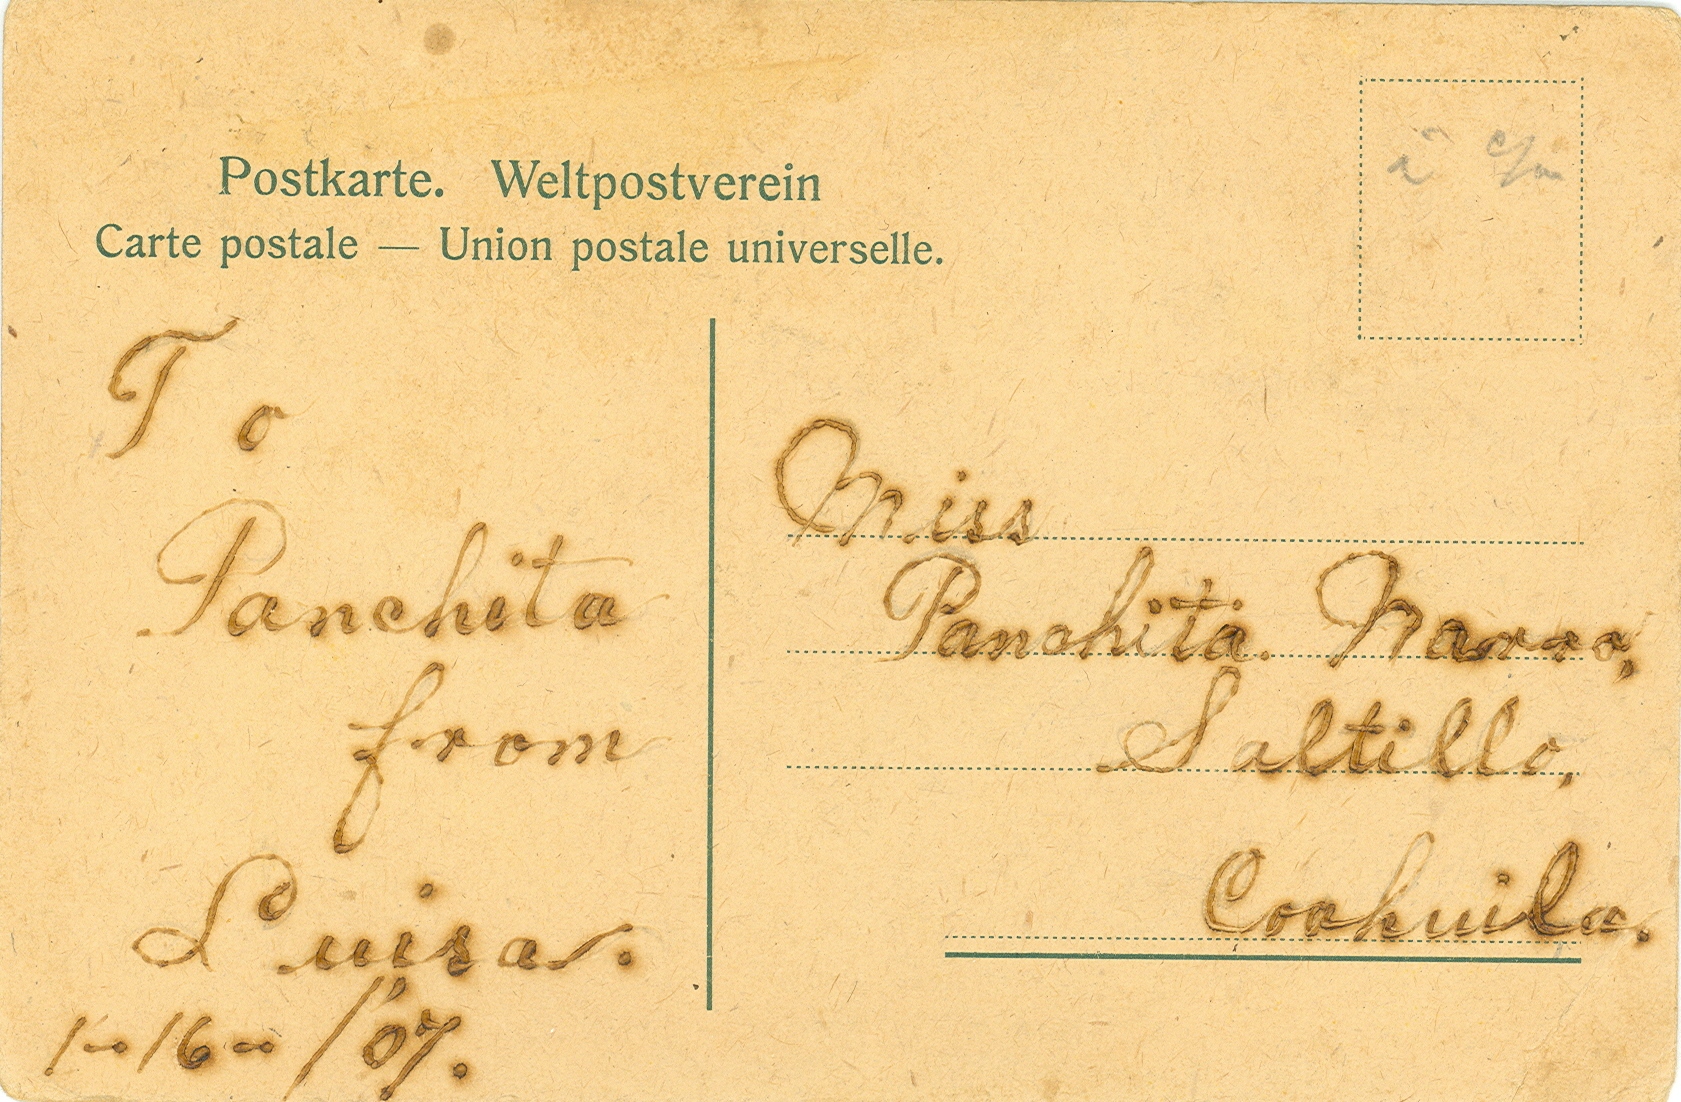 Postkarte. Weltpostverein
Carte postale — Union postale universelle.
To
Panchita
from
Luisa.
1-16-/'07.
Miss
Panchita. Narro,
Saltillo,
Coahuila.